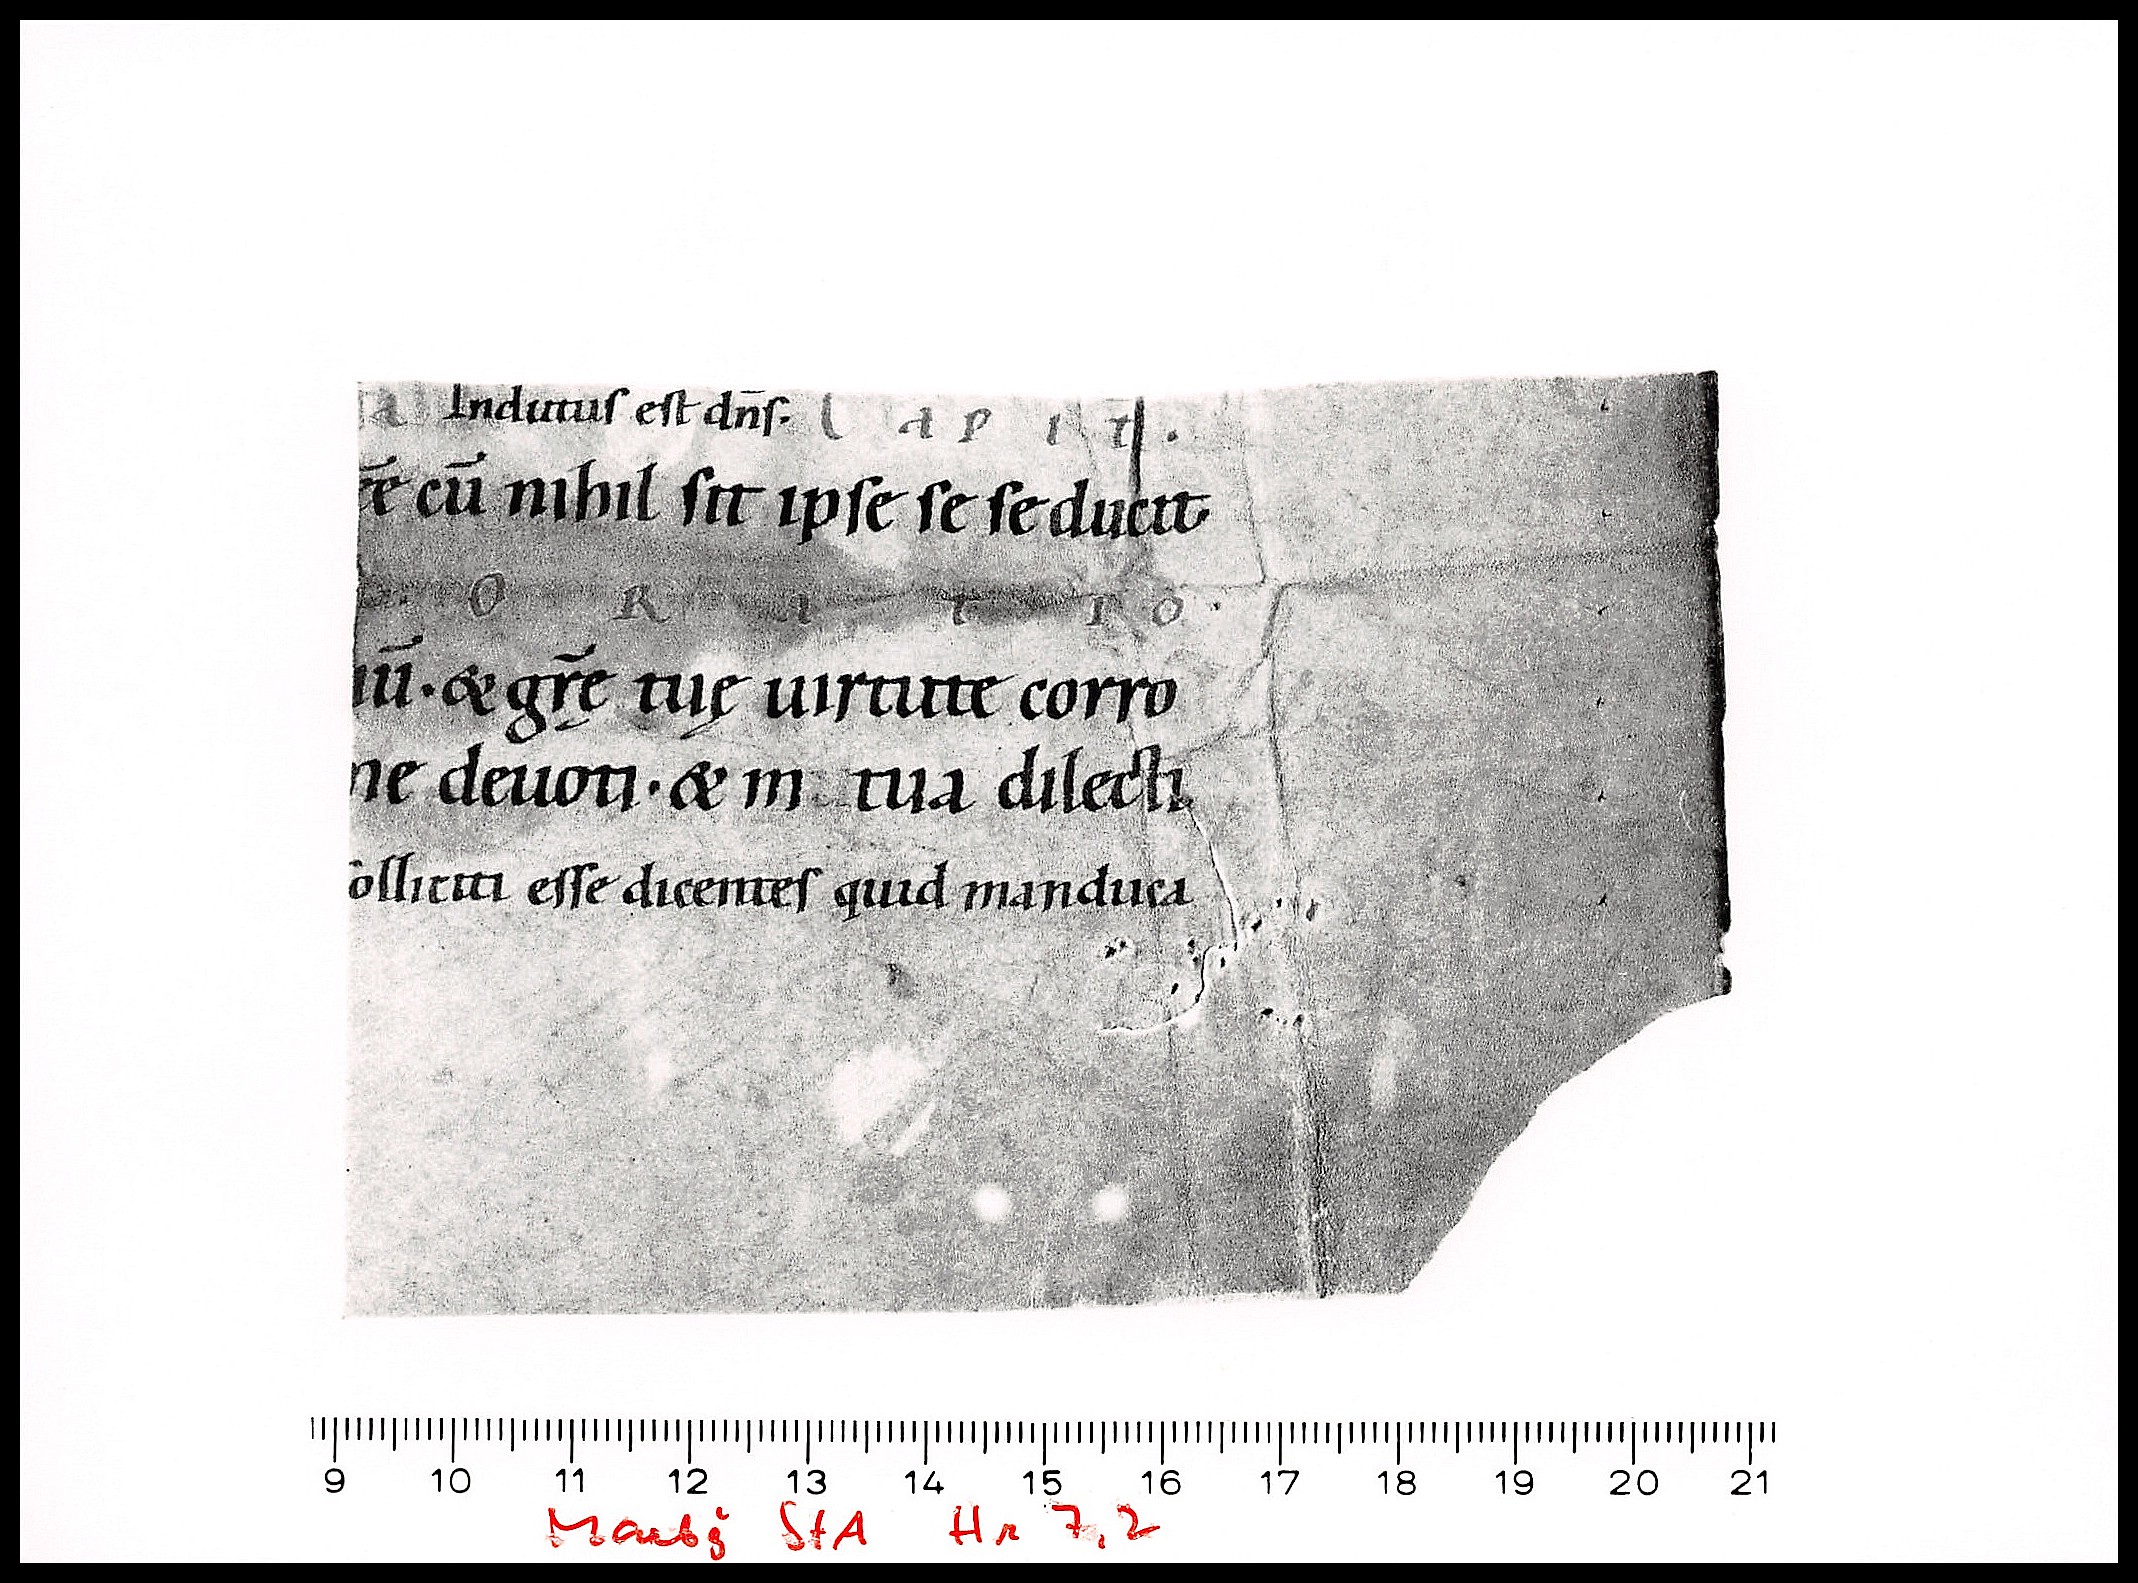 a Indutus est dn̄s. C A P I T.
ēē cū nihil sit ipse se seducit
O R A T I O.
iū. & gr̄ę tuę uirtute corro
ne deuoti. & in tua dilecti
olliciti esse dicentes quid manduca
9 10 11 12 13 14 15 16 17 18 19 20 21
Marbg StA Hr 7,2